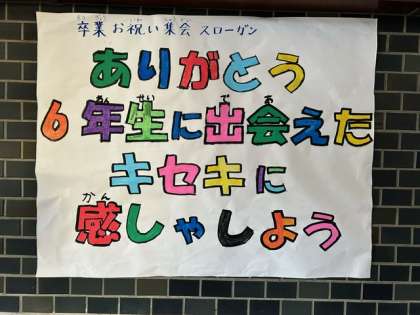 卒業お祝い集会スローガン
ありがとう
6年生に出会えた
キセキに
感しゃしよう